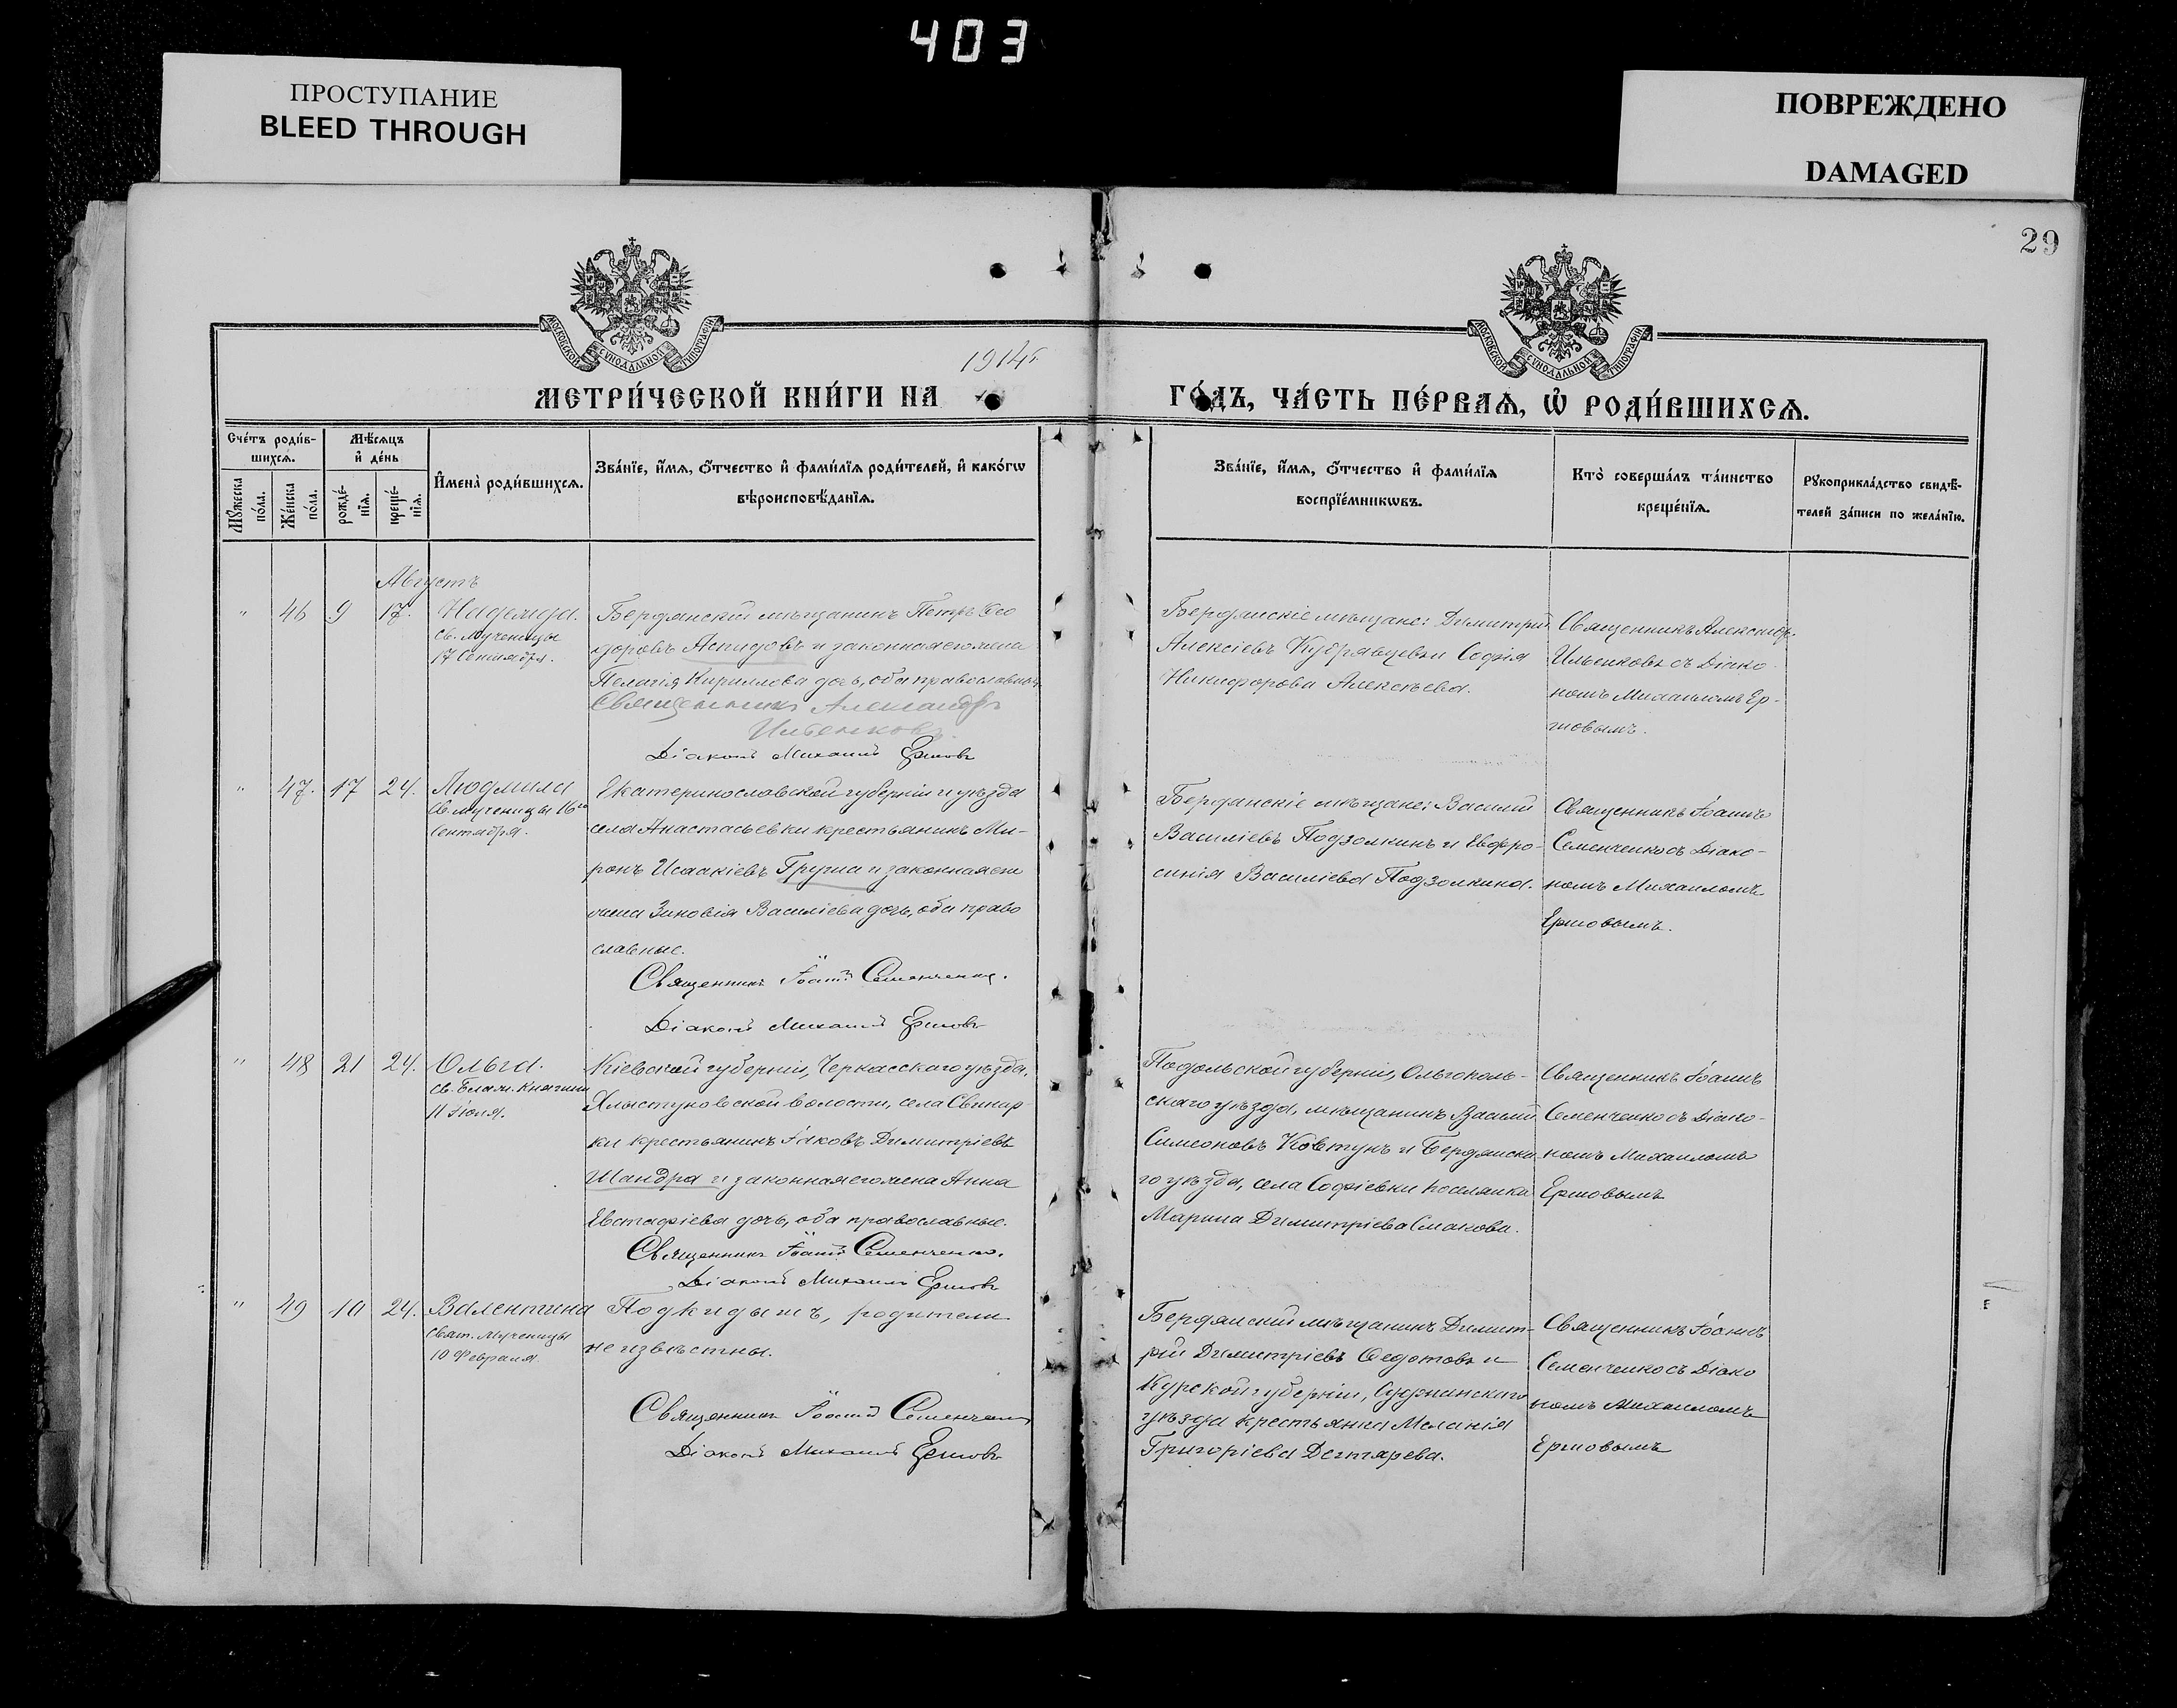 403
ПРОСТУПАНИЕ
BLEED THROUGH
ПОВРЕЖДЕНО
DAMAGED
29
МОСКОВСКОЙ СУНОДАЛЬНОЙ ТИПОГРАФІИ
МОСКОВСКОЙ СУНОДАЛЬНОЙ ТИПОГРАФІИ
1914 г.
МЕТРИ́ЧЕСКОЙ КНИ́ГИ НА
ГО́ДЪ, ЧА́СТЬ ПЕ́РВАѦ, Ѡ҆ РОДИ́ВШИХСѦ.
Сче́тъ роди́в-
шихсѧ.
Мѣ́сѧцъ
и҆ де́нь
Мꙋ́жеска
по́ла.
Же́нска
по́ла.
рожде́-
нїѧ.
креще́-
нїѧ.
И҆мена̀ роди́вшихсѧ.
Зва́нїе, и҆́мѧ, ѻ҆́тчество и҆ фами́лїѧ роди́телей, и҆ како́гѡ
вѣроисповѣ́данїѧ.
Зва́нїе, и҆́мѧ, ѻ҆́тчество и҆ фами́лїѧ
воспрїе́мникѡвъ.
Кто̀ соверша́лъ та́инство
креще́нїѧ.
Рꙋкоприкла́дство свидѣ́-
телей за́писи по жела́нїю.
Августъ
" 46 9 17. Надежда.
Св. Мученицы
17 Сентября.
Бердянскій мѣщанинъ Петръ Ѳео
доровъ Аспидовъ и законная его жена
Пелагія Кириллова дочь, оба православные
Священникъ Александръ
Ильенковъ.
Діаконъ Михаилъ Ершовъ
Бердянскіе мѣщане: Димитрій
Алексіевъ Кудрявцевъ и Софія
Никифорова Алексѣева.
Священникъ Александръ
Ильенковъ съ Діако-
номъ Михаиломъ Ер-
шовымъ.
" 47. 17 24. Людмила
Св. мученицы 16го
Сентября.
Екатеринославской губерніи и уѣзда
села Анастасьевки крестьянинъ Ми-
ронъ Исаакіевъ Груша и законная его
жена Зиновія Василіева дочь, оба право
славные.
Священникъ Іоаннъ Семенченко.
Діаконъ Михаилъ Ершовъ
Бердянскіе мѣщане: Василій
Василіевъ Подзолкинъ и Евфро-
синія Василіева Подзолкина.
Священникъ Іоаннъ
Семенченко съ Діако-
номъ Михаиломъ
Ершовымъ.
" 48 21 24. Ольга.
Св. Благ. Княгини
11 Іюля.
Кіевской губерніи, Черкасскаго уѣзда,
Хлыстуновской волости, села Свинар-
ки крестьянинъ Іаковъ Димитріевъ
Шандра и законная его жена Анна
Евстафіева дочь, оба православные.
Священникъ Іоаннъ Семенченко.
Діаконъ Михаилъ Ершовъ
Подольской губерніи, Ольгополь-
скаго уѣзда, мѣщанинъ Василій
Симеоновъ Ковтунъ и Бердянска
го уѣзда, села Софіевки поселянка
Марина Димитріева Смакова.
Священникъ Іоаннъ
Семенченко съ Діако-
номъ Михаиломъ
Ершовымъ
" 49 10 24. Валентина
Свят. Мученицы
10 Февраля
Подкидышъ, родители
неизвѣстны.
Священникъ Іоаннъ Семенченко
Діаконъ Михаилъ Ершовъ
Бердянскій мѣщанинъ Димит-
рій Димитріевъ Ѳедотовъ и
Курской губерніи, Суджанскаго
уѣзда крестьянка Меланія
Григоріева Дегтярева.
Священникъ Іоаннъ
Семенченко съ Діако
номъ Михаиломъ
Ершовымъ